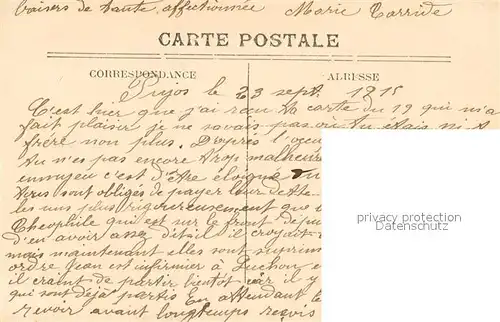 baisers de tante affectionnée Marie Tarride
CARTE POSTALE
CORRESPONDANCE ADRESSE
Pujos le 23 sept 1915
C'est hier que j'ai reçu ta carte du 19 qui m'a
fait plaisir je ne savais pas où tu étais ni ton
frère non plus. D'après
tu n'es pas encore trop malheureux
c'est d'être éloigné
sont obligés de payer leur dette
les uns plus rigoureusement que
Théophile qui est sur le front
d'en avoir assez détail il croyait
mais maintenant elles sont
ordre Jean est infirmier à Luchon
il craint de partir bientôt car il y
qui sont déjà partis En attendant le
revoir avant longtemps reçois
privacy protection
Datenschutz